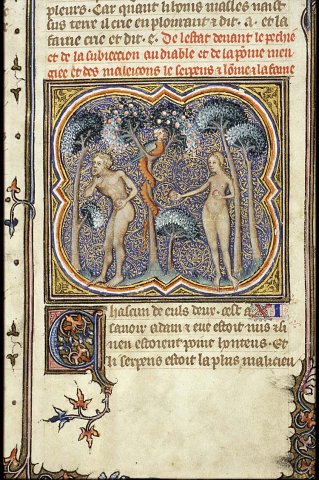 pleurs. Car quant li hons malles naist
sus terre il crie en plorant et dit . a . et la
fame crie et dit . e . De lestat deuant le pechie
et de la subiection au diable et de la pome men
giee et des maleicons le serpent et lome et la fame
Chascun de euls deux . cest a XI
sauoir adam et eue estoit nuis et si
nen estoient point honteus . Et
li serpens estoit la plus malicieu